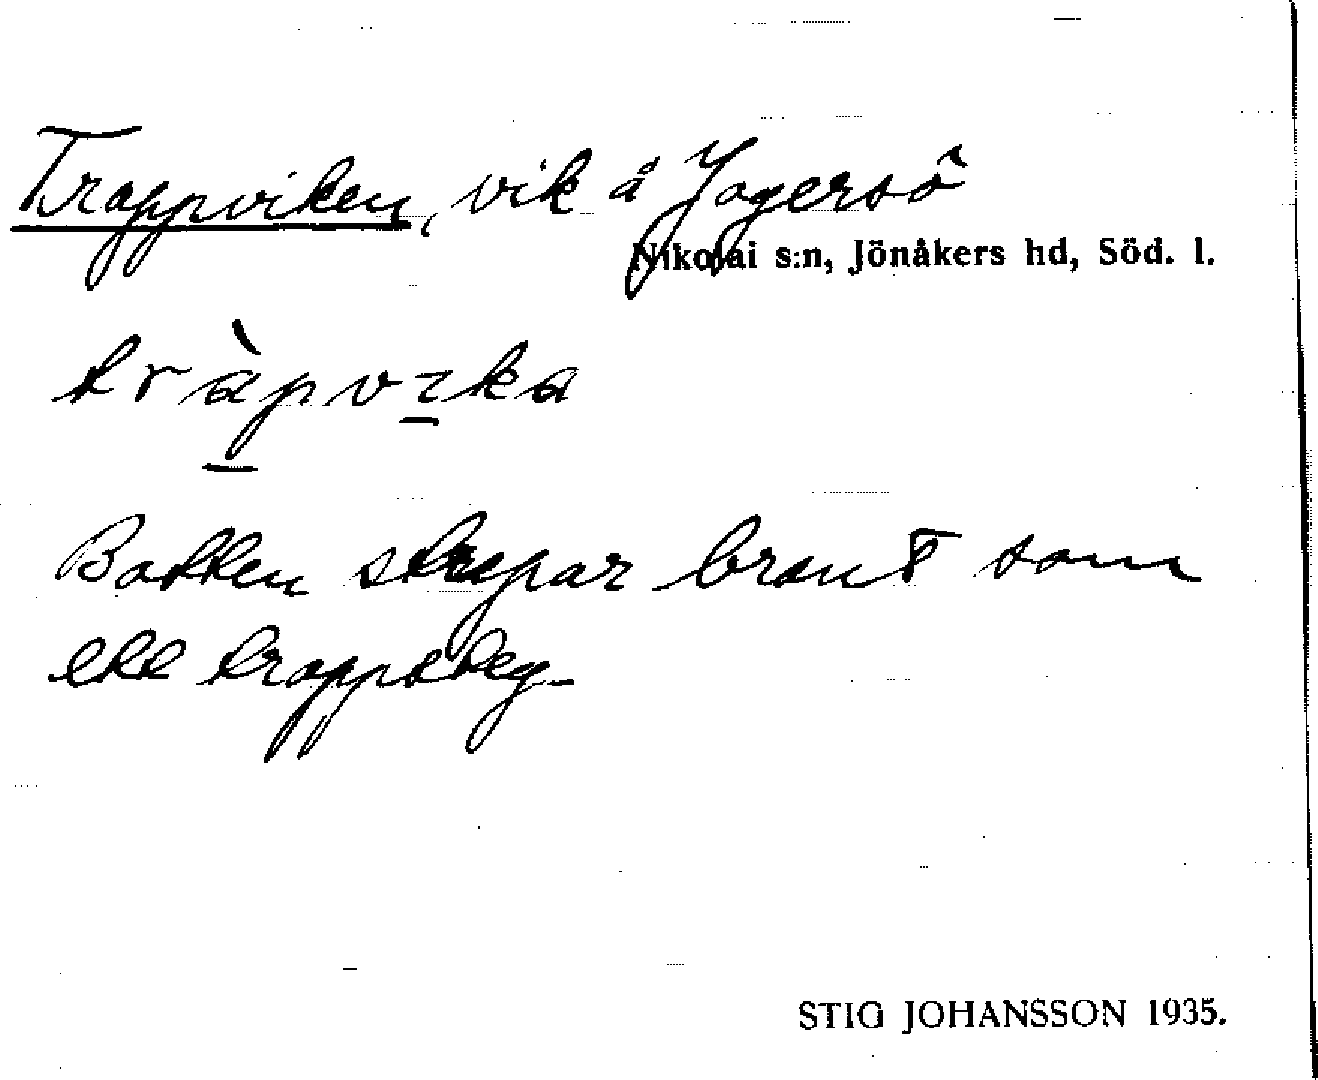 Trappviken, vik å Jogersö
Nikolai s:n, Jönåkers hd, Söd. l.
tràpvika
Botten stupar brant som
ett trappsteg
STIG JOHANSSON 1935.